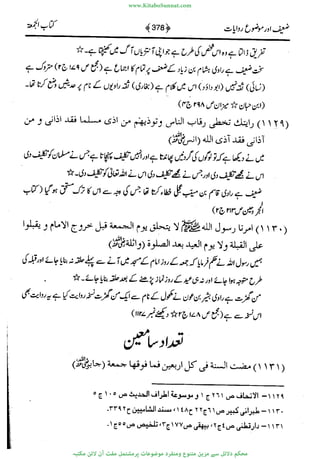 www.KitaboSunnat.com
ضعیف اور موضوع روایات ﴿378﴾ کتاب الجمعة
تفریق ڈالتا ہے وہ اس شخص کی طرح ہے جو اپنی آنتیں آگ میں کھینچتا ہے۔☆
سخت ضعیف ہے راوی ہشام بن زیاد کے ضعف پر تمام کا اجماع ہے (مجمع ص ۱۷۹ ج ۲) متروک ہے
(نسائی) ثقہ نہیں (ابوداؤد) اس میں کلام ہے (بخاری) ثقہ راویوں کے نام پر حدیثیں وضع کرتا تھا۔
(ابن حبان ☆ میزان ص ۲۹۸ ج ۴)
(۱۱۲۹) رایتك تخطى رقاب الناس وتوذيهم من اذى مسلما فقد اذانى و من
آذانى فقد آذى الله (انس)
میں نے دیکھا ہے کہ تو لوگوں کی گردنیں پھاندتا ہے اور انہیں تکلیف پہنچاتا ہے جس نے مسلمان کو تکلیف دی
اس نے مجھے تکلیف دی اور جس نے مجھے تکلیف دی اس نے اللہ تعالیٰ کو تکلیف دی۔☆
ضعیف ہے راوی قاسم بن مہلب عجلی خطا کرتا تھا جس کی وجہ سے اس کا ترک مستحق ہو گیا (کتاب
المجروحین ص ۲۱۳ ج ۲)
(۱۱۳۰) امرنا رسول الله ﷺ لا يتحلق يوم الجمعة قبل خروج الامام و يقبلوا
على القبلة ولا يوم العيد بعد الصلوة (واثلة)
ہمیں رسول اللہ نے حکم فرمایا کہ جمعہ کے روز امام کے مسجد میں آنے سے پہلے حلقہ نہ بنایا جائے اور قبلہ کی
طرف متوجہ ہوا جائے اور نہ ہی عید کے روز نماز پڑھنے کے بعد حلقہ بنایا جائے۔☆
من گھڑت ہے راوی بشیر بن عون نے مکحول کے نام سے ایک سو من گھڑت نسخہ روایت کیا ہے یہ روایت بھی
اس نسخہ سے ہے (مجمع ص ۱۷۸ ج ۲ ☆ دیکھئے نمبر ۱۱۲۷)
تعداد سامعین
(۱۱۳۱) مضت السنة فى كل اربعين فما فوقها جمعة (جابر)
۱۱۲۹- الاتحاف ص ۲۶۱ ج ۱ و موسوعة اطراف الحديث ص ۱۰۵ ج ۵
۱۱۳۰- طبرانى كبير ص ۶۱ ج ۲۲ ح ۱۴۸ مسند الشاميين ح ۳۳۹۲۔
۱۱۳۱- دارقطنى ص ۴ ج ۲ بيهقى ص ۱۷۷ ج ۳ تلخيص ص ۵۵ ج ۱۔
محکم دلائل سے مزین متنوع ومنفرد موضوعات پر مشتمل مفت آن لائن مکتبہ